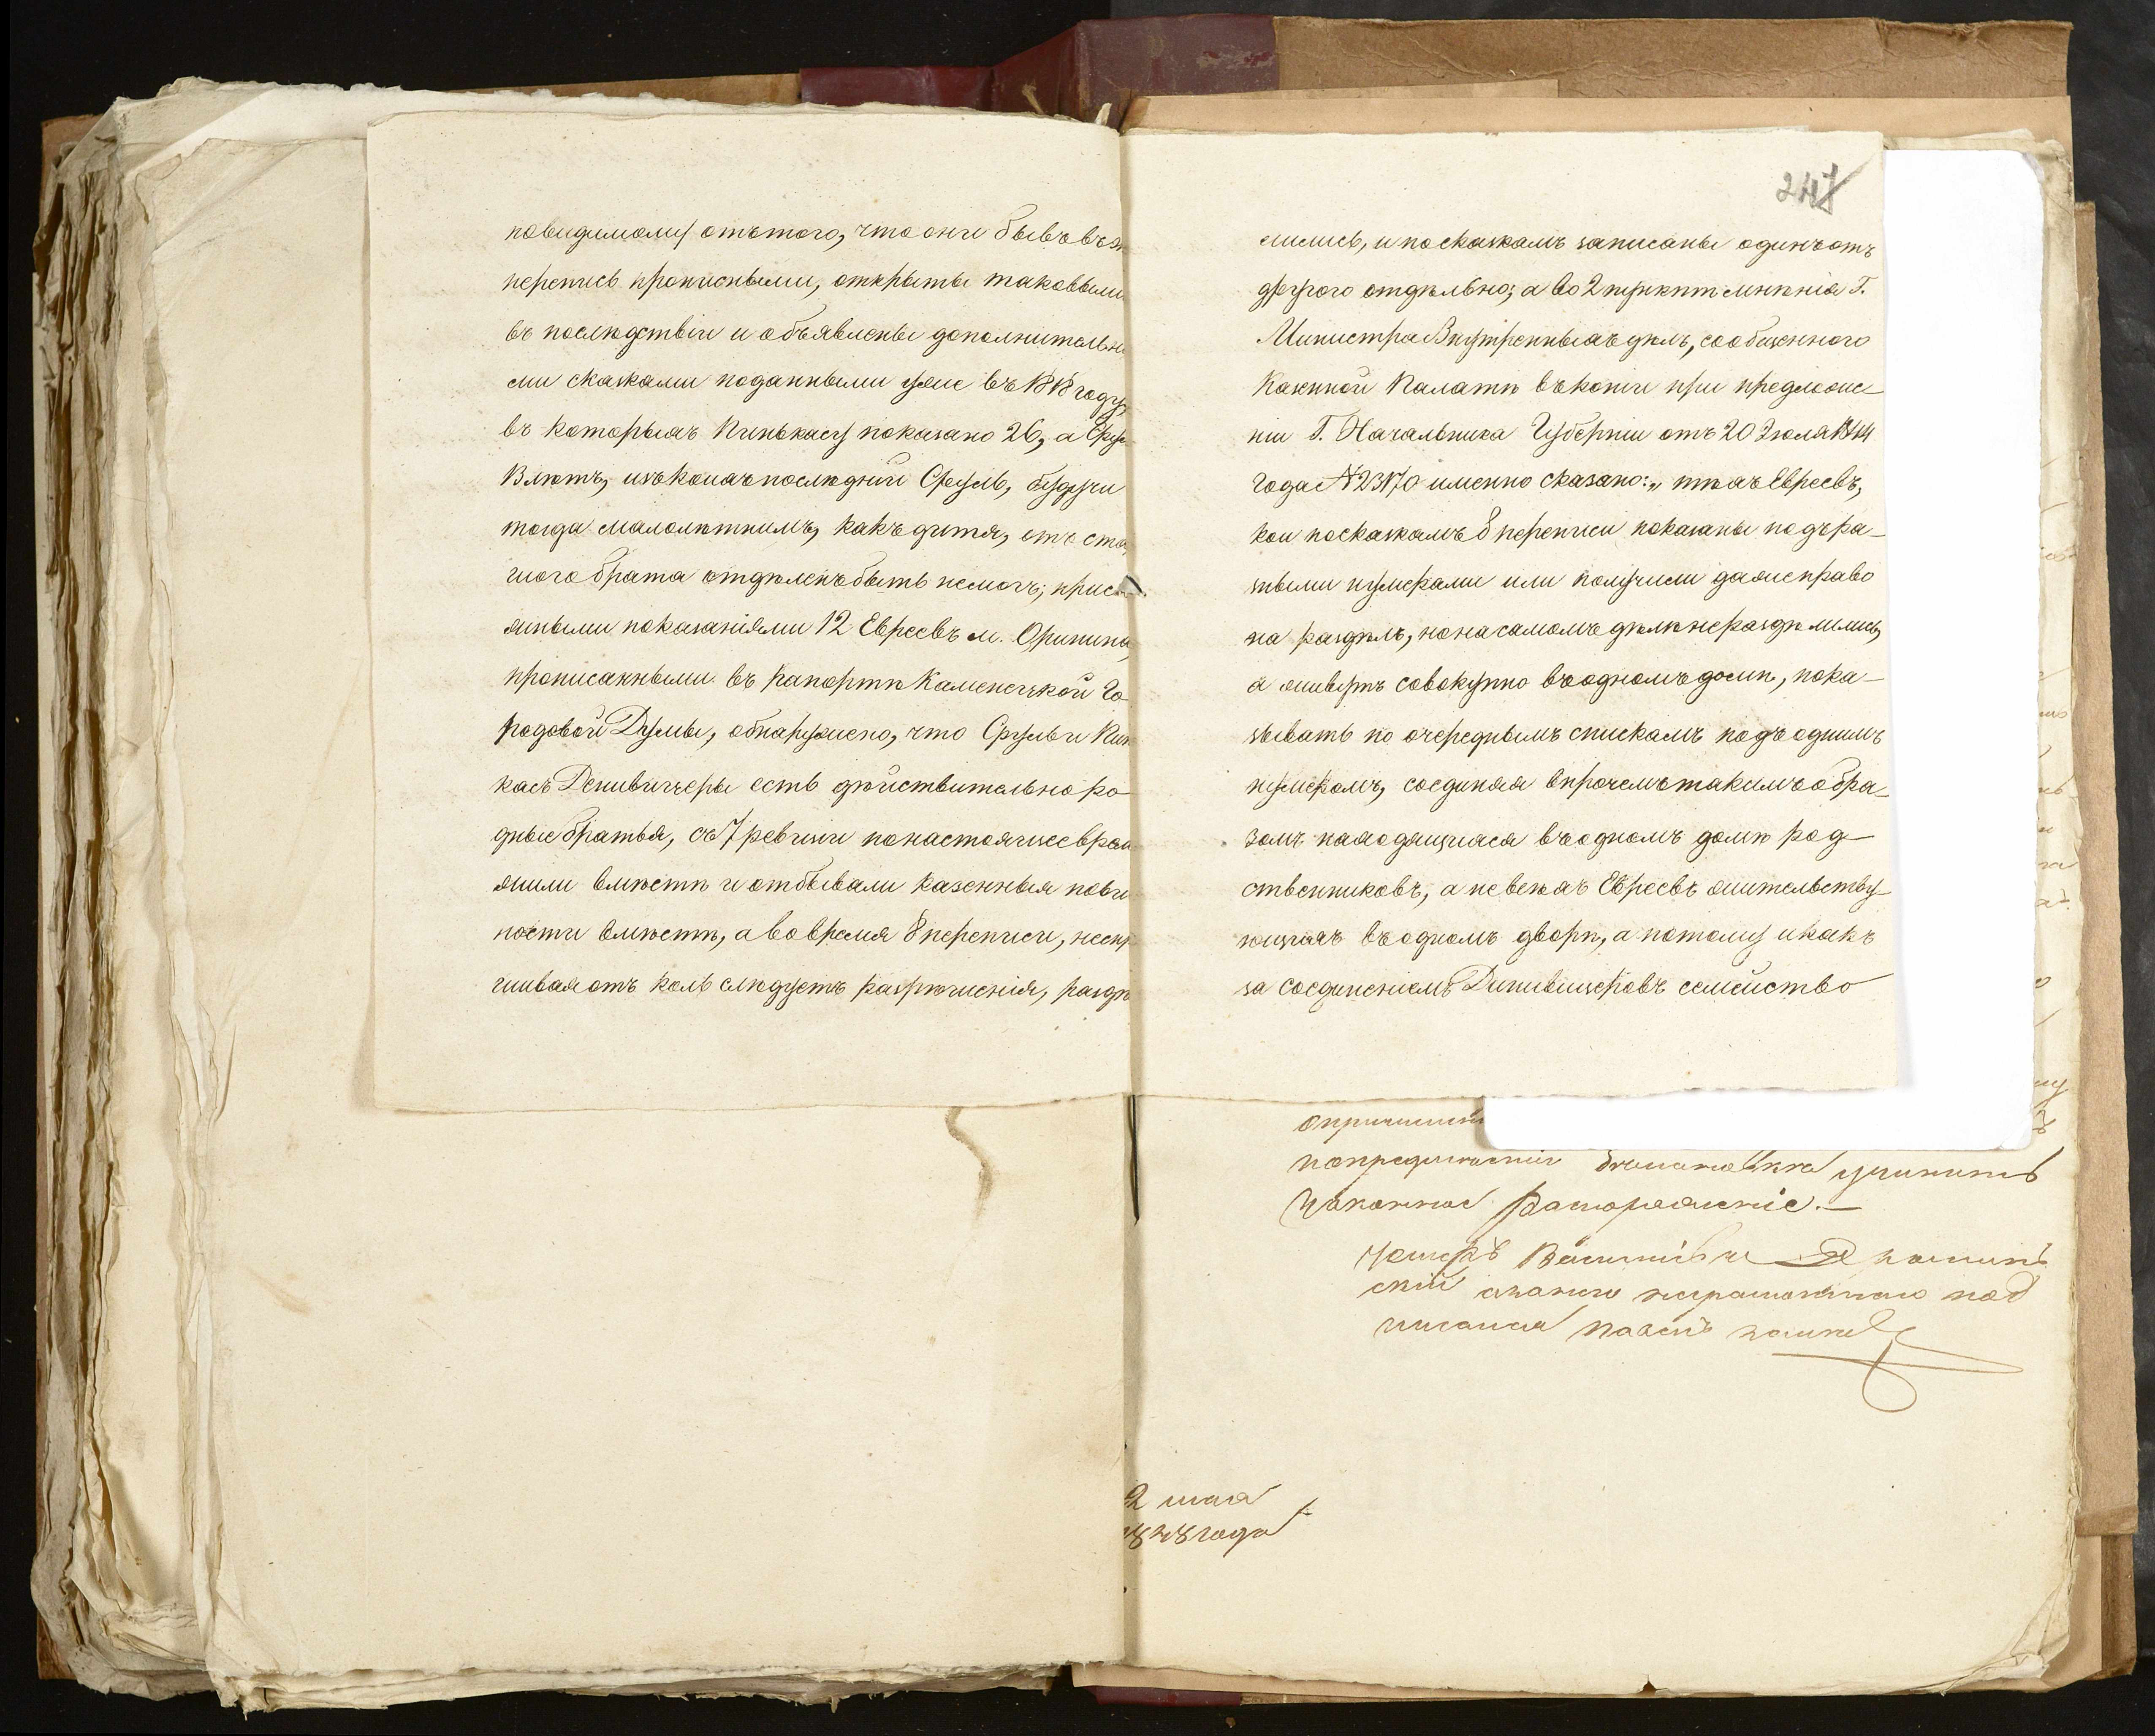 повидимому отътого, что они бывъ въ
перепись прописными, открыты таковыми
въ послѣдствіи и объявлены дополнительны
ми сказками поданными уже въ году,
въ которыхъ Пинькасу показано 26, а Сру
8 лѣтъ, изъ коихъ послѣдній Сруль, будучи
тогда малолѣтнимъ, какъ дитя, отъ ста
шого брата отдѣленъ быть немогъ; прися
жными показаніями 12 Евреевъ м. Оринина,
прописанными въ рапортѣ Каменецкой Го
родовой Думы, обнаружено, что Сруль и Пин
касъ есть дѣйствительно ро
дные братья, съ 7 ревизіи по настоящее врем
жили вмѣстѣ и отбывали казенныя повин
ности вмѣстѣ, а во время 8 переписи, неспр
шивая отъ коль слѣдуетъ разрѣшенія, раздѣ
247
лились, и посказкамъ записаны одинъ отъ
другого отдѣльно; а во 2 пунктѣ мнѣнія Г.
Министра Внутреннихъ дѣлъ, сообщенного
Казенной Палатѣ въ копіи при предложе-
ніи Г. Начальника Губерніи отъ 20 Іюля 1844
года № 23170 именно сказано: „тѣхъ Евреевъ,
кои посказкамъ 8 переписи показаны подъ ра-
зными нумерами или получили даже право
на раздѣлъ, но на самомъ дѣлѣ не раздѣлились,
а живутъ совокупно въ одномъ домѣ, пока-
зывать по очереднымъ спискамъ подъ однимъ
нумеромъ, соединяя впрочемъ такимъ обра-
зомъ находящихся въ одномъ домѣ род-
ственниковъ, а не всѣхъ Евреевъ жительству-
ющихъ въ одномъ дворѣ, а потому и какъ
за соединеніемъ Динивицеровъ семейство
учинить
законное распоряженіе.—
неграмотного под
писался
2 мая
1848 года